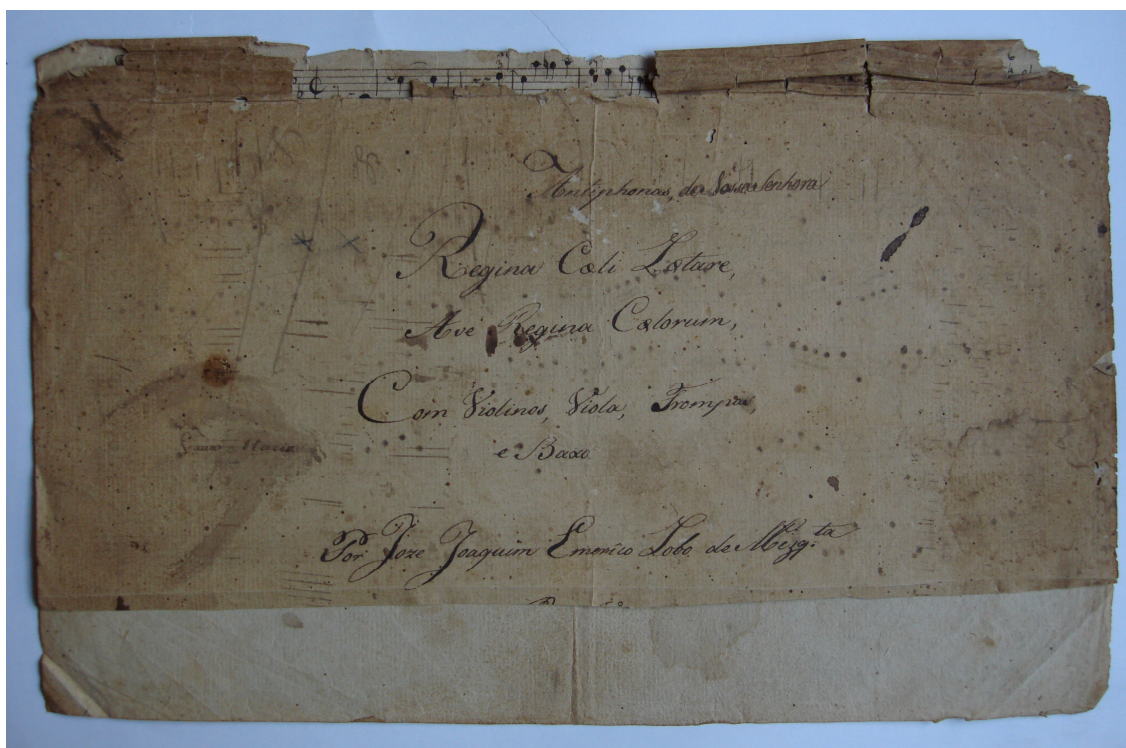 Antiphonas, de Nossa Senhora
Regina Cœli Lætare,
Ave Regina Cœlorum,
Com Violinos, Viola, Trompas,
e Baxo
Por Joze Joaquim Emerico Lobo de Mizq.ta